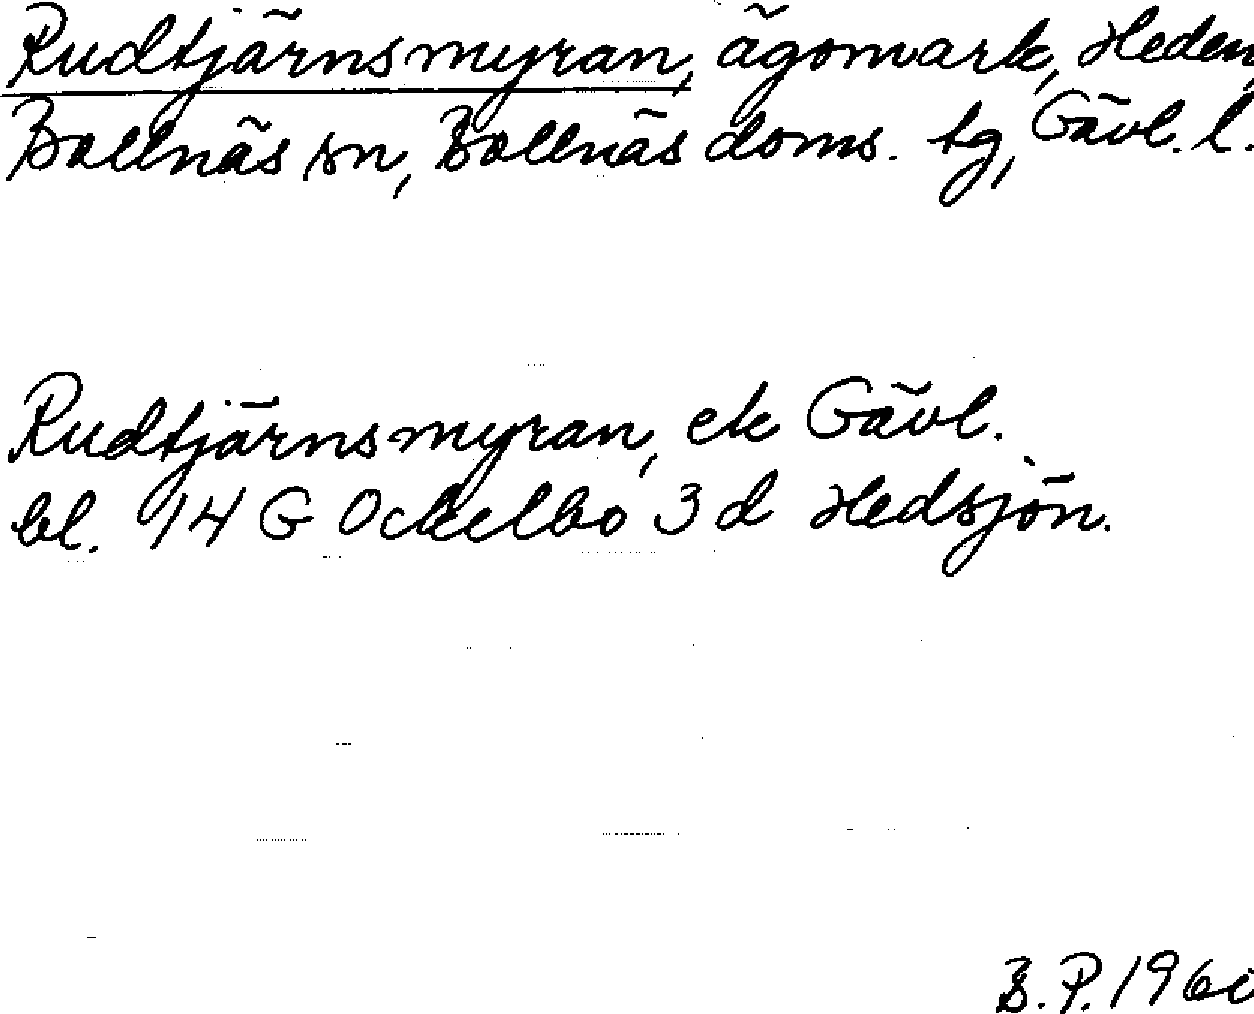 Rudtjärnsmyran, ägomark, Heden,
Bollnäs sn, Bollnäs doms. tg, Gävl. l.
Rudtjärnsmyran, ek Gävl.
bl. 14 G Ockelbo 3 d Hedsjön.
B.P. 196